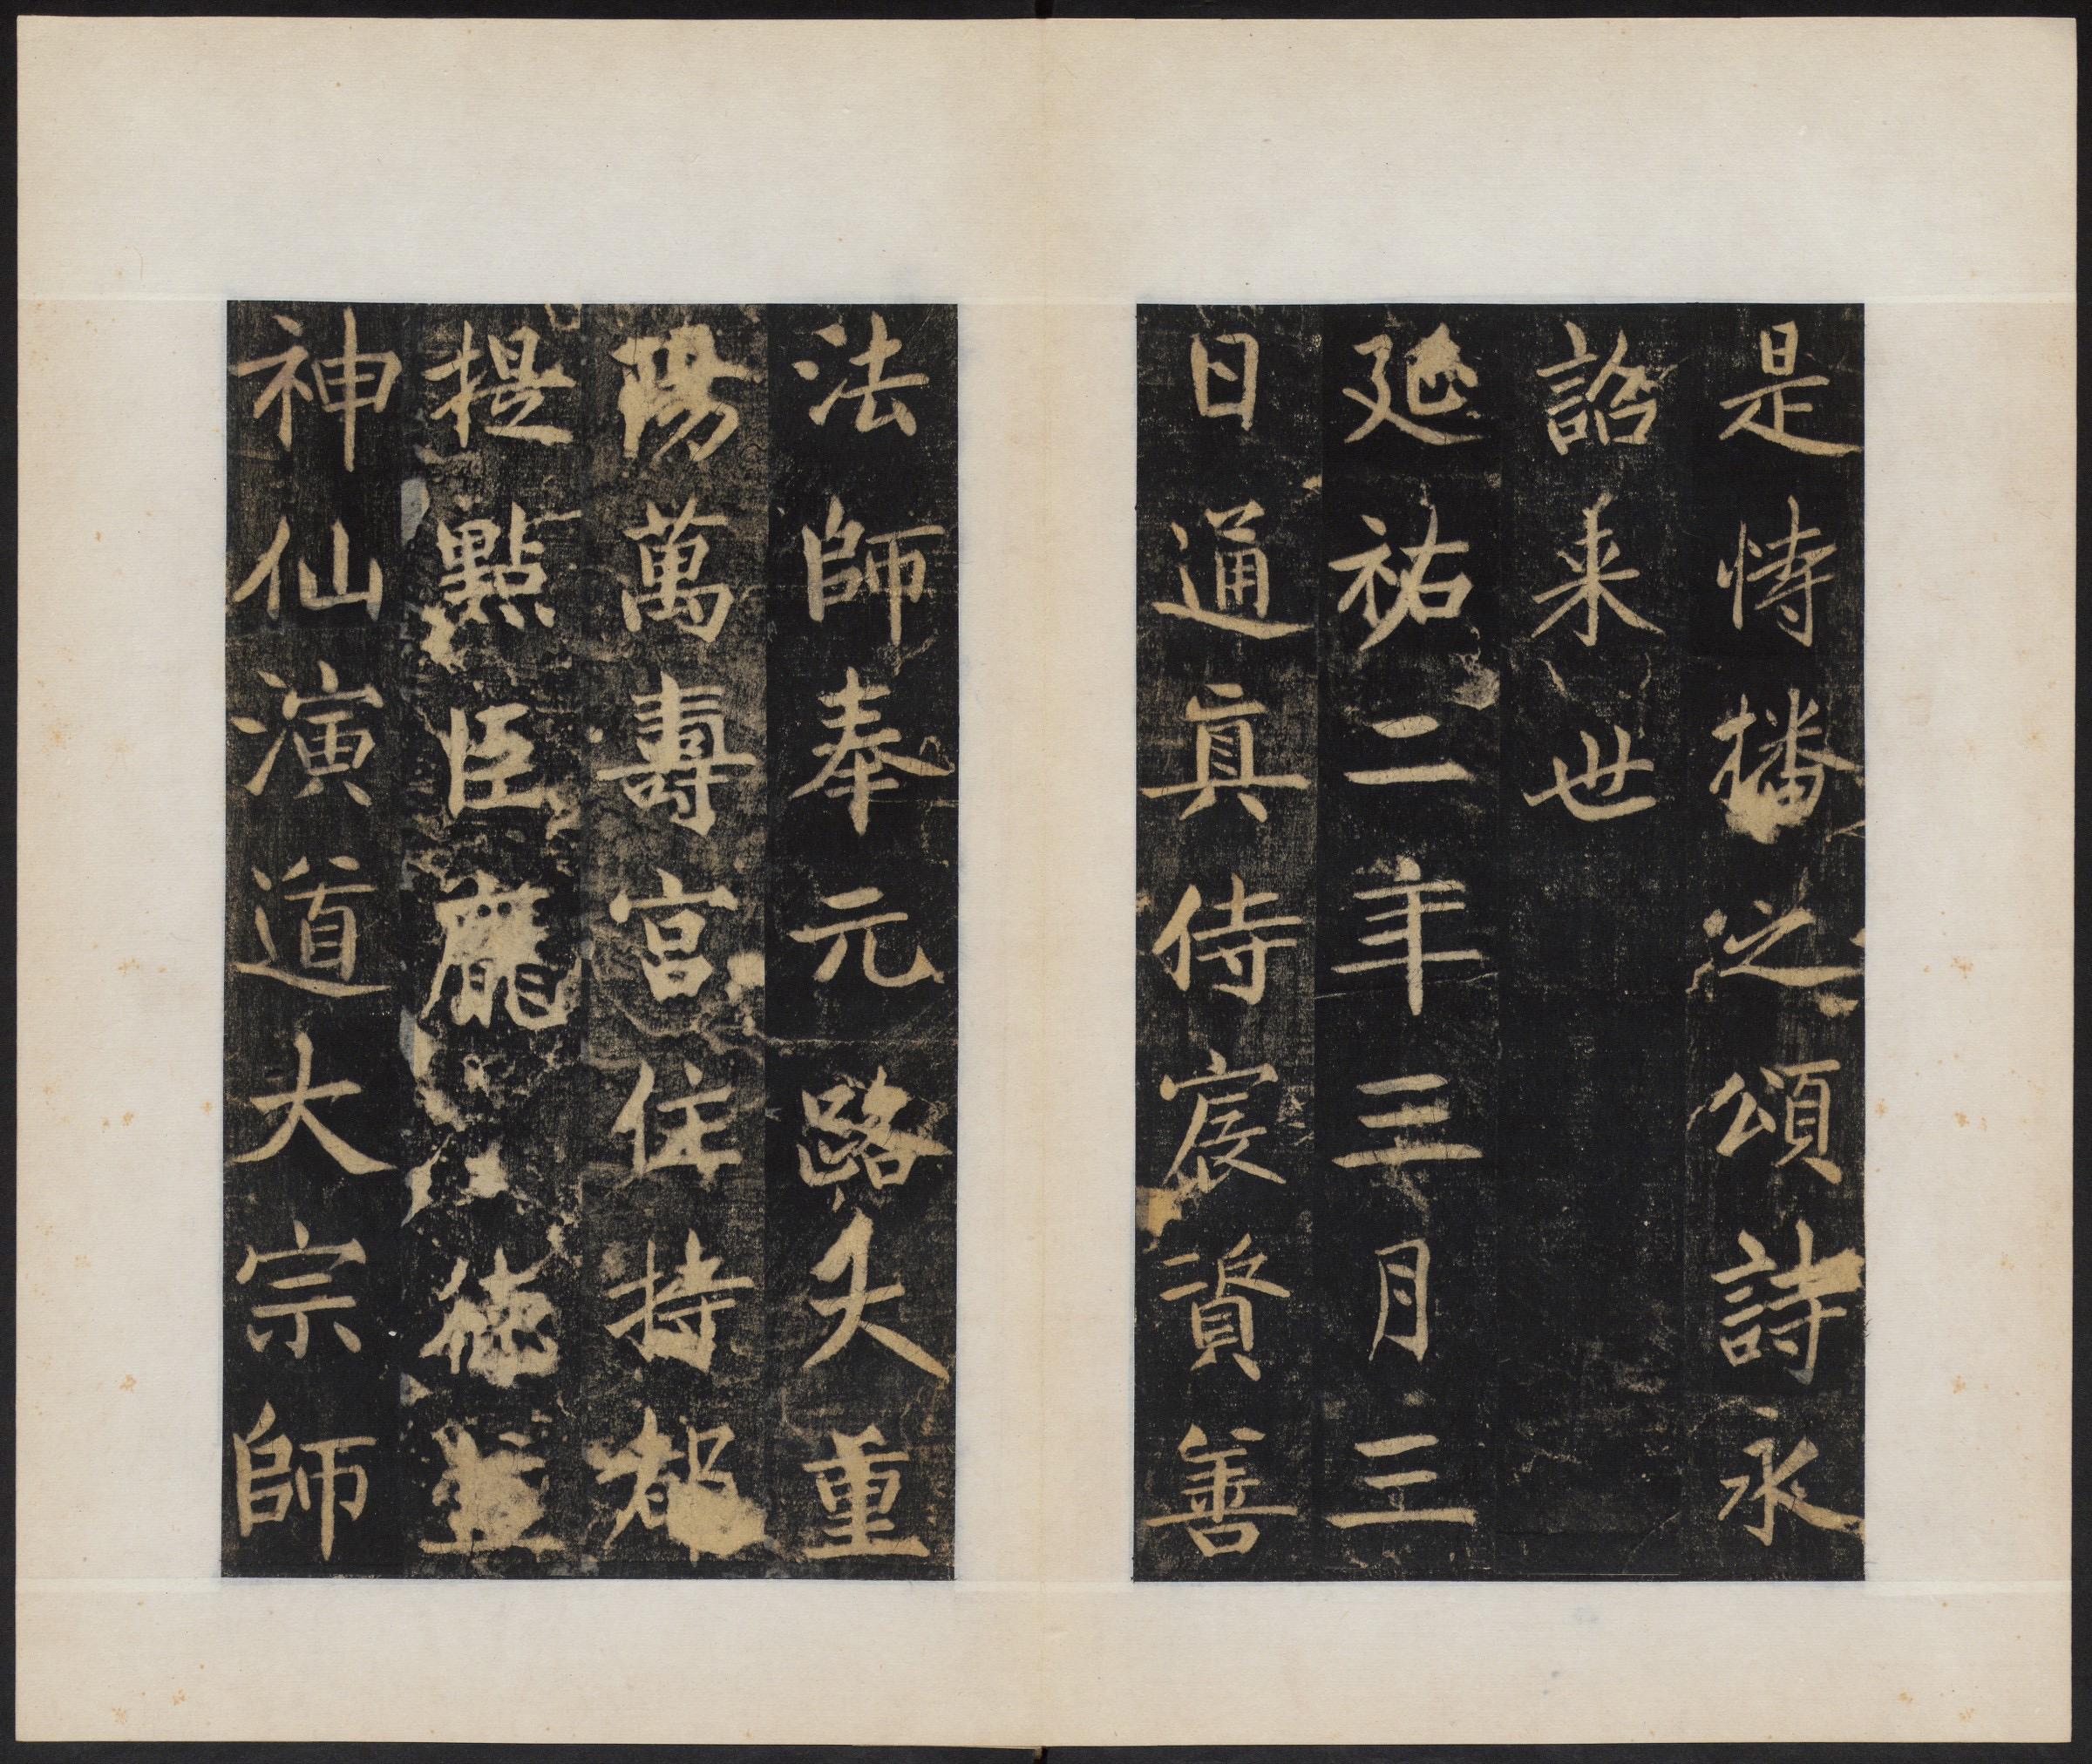 是恃播之頌詩永
詔来世
延祐二年三月三
日通真侍宸資善
法師奉元路大重
陽萬壽宮住持都
提點臣龐德益立
神仙演道大宗師